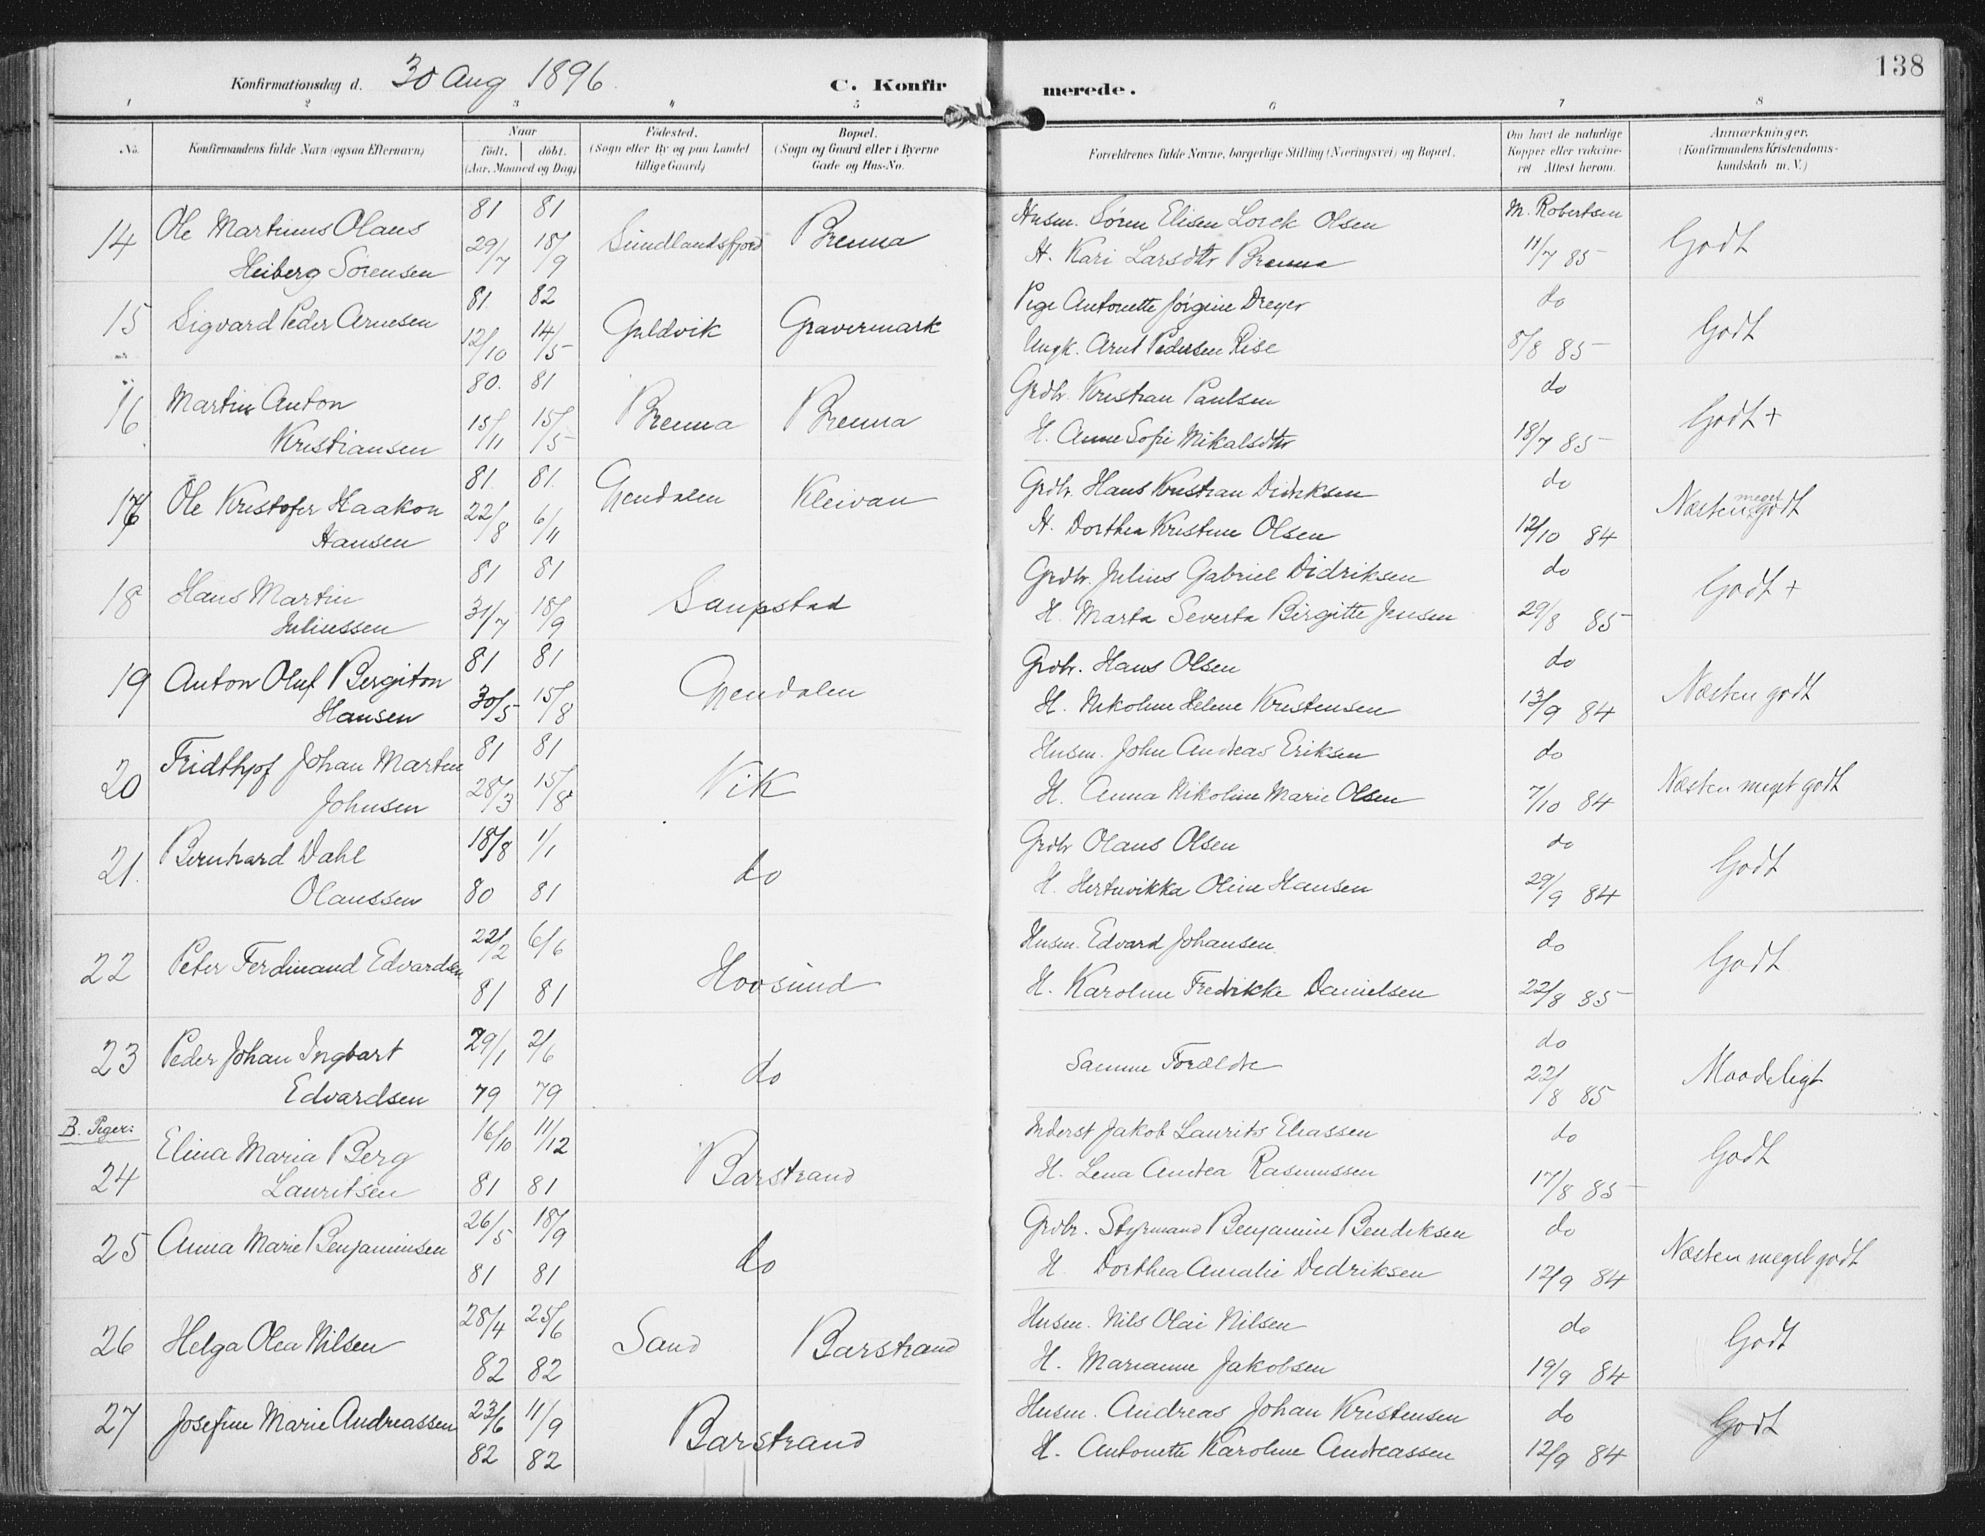 138
Konfirmationsdag d. 30 Aug 1896. C. Konfirmerede.
1 2 3 4 5 6 7 8
No. Konfirmandens fulde Navn (ogsaa Efternavn) Naar født. døbt. (Aar, Maaned og Dag) Fødested. (Sogn eller By og paa Landet tillige Gaard) Bopæl. (Sogn og Gaard eller i Byerne Gade og Hus-No. Forældrenes fulde Navne, borgerlige Stilling (Næringsvei) og Bopæl. Om havt de naturlige Kopper eller vaccineret Attest herom. Anmærkninger. (Konfirmandens Kristendomskundskab m. V.)
14 Ole Martinus Olaus 81 81 Sundlandsfjord Brenna Husm. Sören Elisen Lorck Olsen M. Robertsen Godt
Heiberg Sörensen 29/7 18/9 H. Kari Larsdtr Brenna 11/7 85
15 Sigvard Peder Arnesen 81. 82 Guldvik Gravermark Pige Antonette Jörgine Dreyer do Godt
12/10 14/5 Ungk. Arnt Pedersen Rise 8/8 85
16 Martin Anton 80. 81 Brenna Brenna Grdbr. Kristian Paulsen do Godt +
Kristiansen 15/11 15/5 H. Anne Sofie Mikalsdtr 18/7 85
17 Ole Kristofer Haakon 81. 81. Gjendalen Kleivan Grdbr. Hans Kristian Didriksen do Næsten meget godt
Hansen 22/8 6/11 H. Dorthea Kristine Olsen 12/10 84
18 Hans Martin 81 81 Saupstad Grdbr. Julius Gabriel Didriksen do Godt +
Juliussen 31/7 18/9 H. Marta Severta Birgitte Jensen 29/8 85
19 Anton Oluf Bergiton 81 81 Gjendalen Grdbr. Hans Olsen do Næsten godt
Hansen 30/5 15/8 H. Nikoline Helene Kristensen 13/9 84
20 Fridthjof Johan Marten 81 81 Vik Husm. John Andreas Eriksen do Næsten meget godt
Johnsen 28/3 15/8 H. Anna Nikoline Marie Olsen 7/10 84
21. Bernhard Dahl 18/8 1/1 do Grdbr Olaus Olsen do Godt
Olaussen 80 81 H. Hertuvikka Oline Hansen 29/9 84
22 Peter Ferdinand Edvardsen 22/2 6/6 Hovsund Husm. Edvard Johansen do Godt
81 81 H. Karoline Fredrikke Danielsen 22/8 85
23 Peder Johan Ingbart 29/1 2/6 do Samme Forældre do Maadeligt
Edvardsen 79 79 22/8 85
B. Piger:
24 Elina Maria Berg 16/10 11/12 Barstrand Inderst Jakob Laurits Eliassen do Godt
Lauritsen 81 81 H. Lena Andrea Rasmussen 17/8 85
25 Anna Marie Benjaminsen 26/5 18/9 do Grdbr. Styrmand Benjamin Bendiksen do Næsten meget godt
81 81 H. Dorthea Amalie Dedriksen 12/9 84
26 Helga Olea Nilsen 28/4 25/6 Sand Barstrand Husm. Nils Olai Nilsen do Godt
82 82 H. Marianne Jakobsen 19/9 84
27 Josefine Marie Andreassen 23/6 11/9 Barstrand Husm. Andreas Johan Kristensen do Godt
82 82 H. Antonette Karoline Andreassen 12/9 84